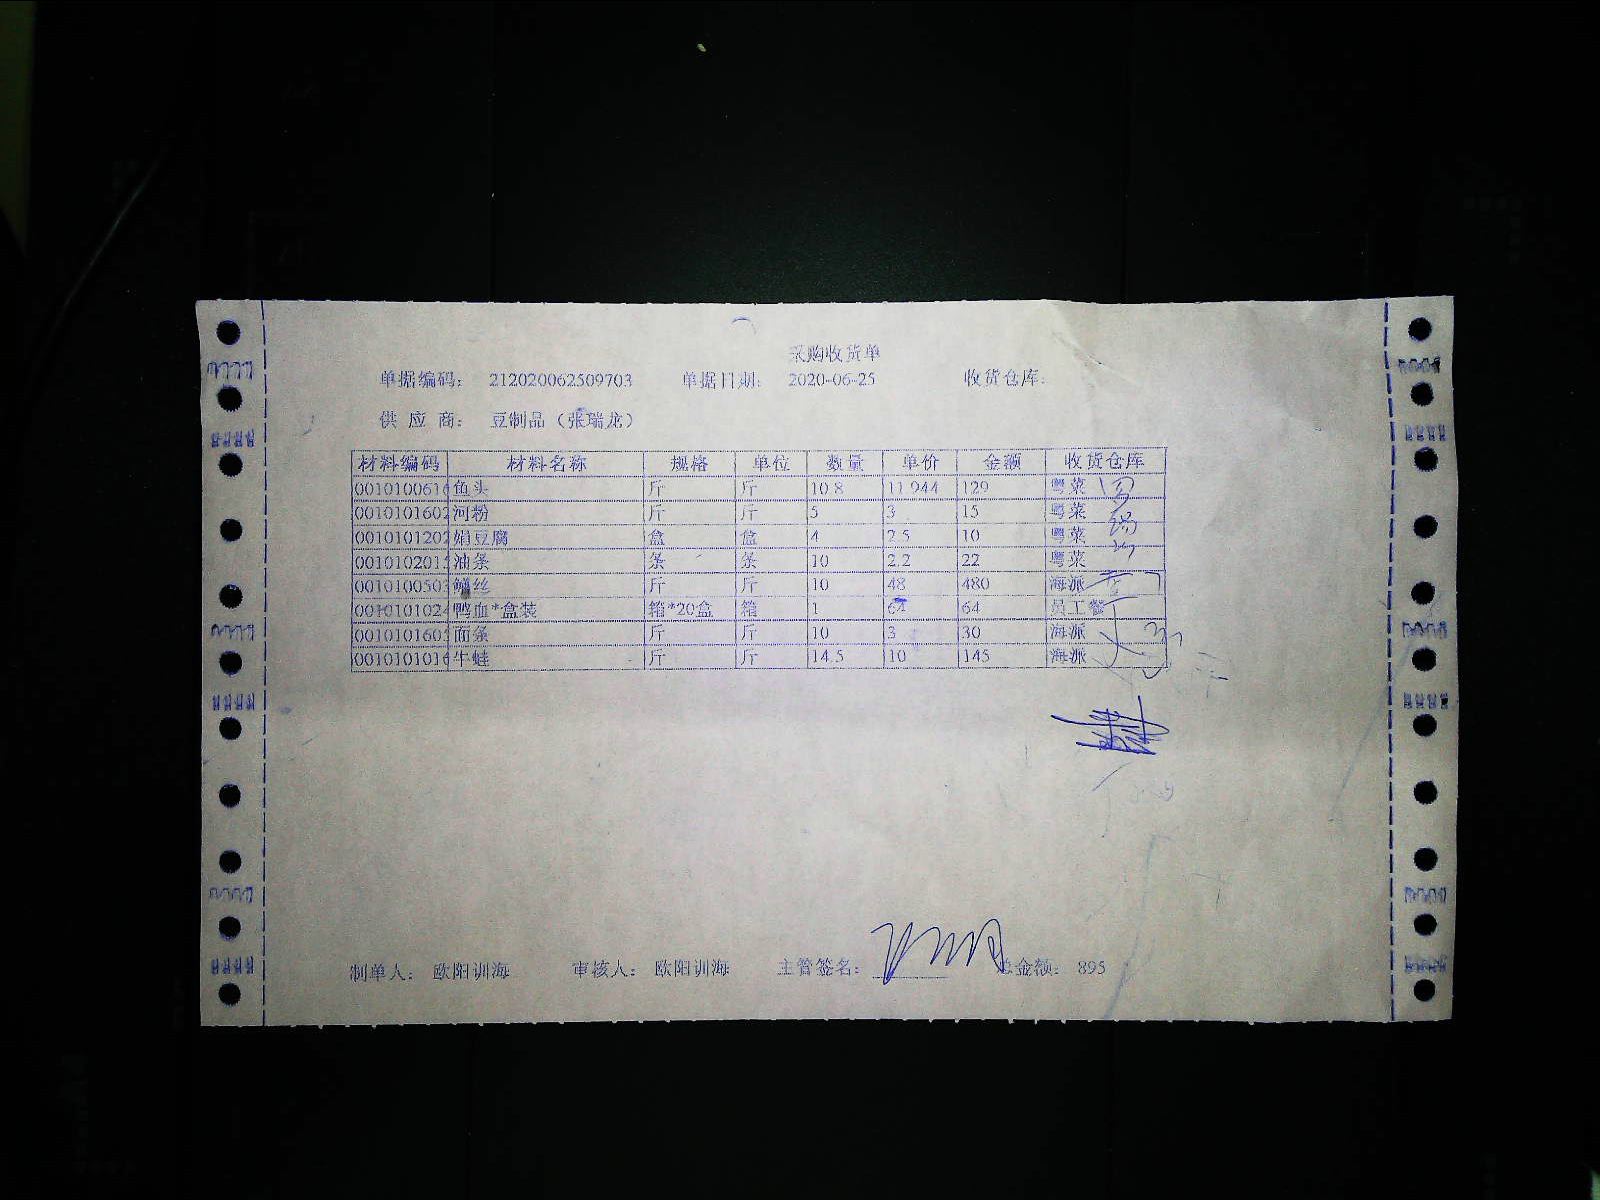 采购收货单
单据编码： 212020062509703 单据日期： 2020-06-25 收货仓库：
供 应 商： 豆制品（张瑞龙）
材料编码 材料名称 规格 单位 数量 单价 金额 收货仓库
0010100616 鱼头 斤 斤 10.8 11.944 129 粤菜
001010160 河粉 斤 斤 5 3 15 粤菜
001010120 娟豆腐 盒 盒 4 2.5 10 粤菜
001010201 油条 条 条 10 2.2 22 粤菜
001010050 鳝丝 斤 斤 10 48 480 海派
001010102 鸭血*盒装 箱*20盒 箱 1 64 64 员工餐
001010160 面条 斤 斤 10 3 30 海派
001010101 牛蛙 斤 斤 14.5 10 145 海派
制单人： 欧阳训海 审核人： 欧阳训海 主管签名： 总金额： 895